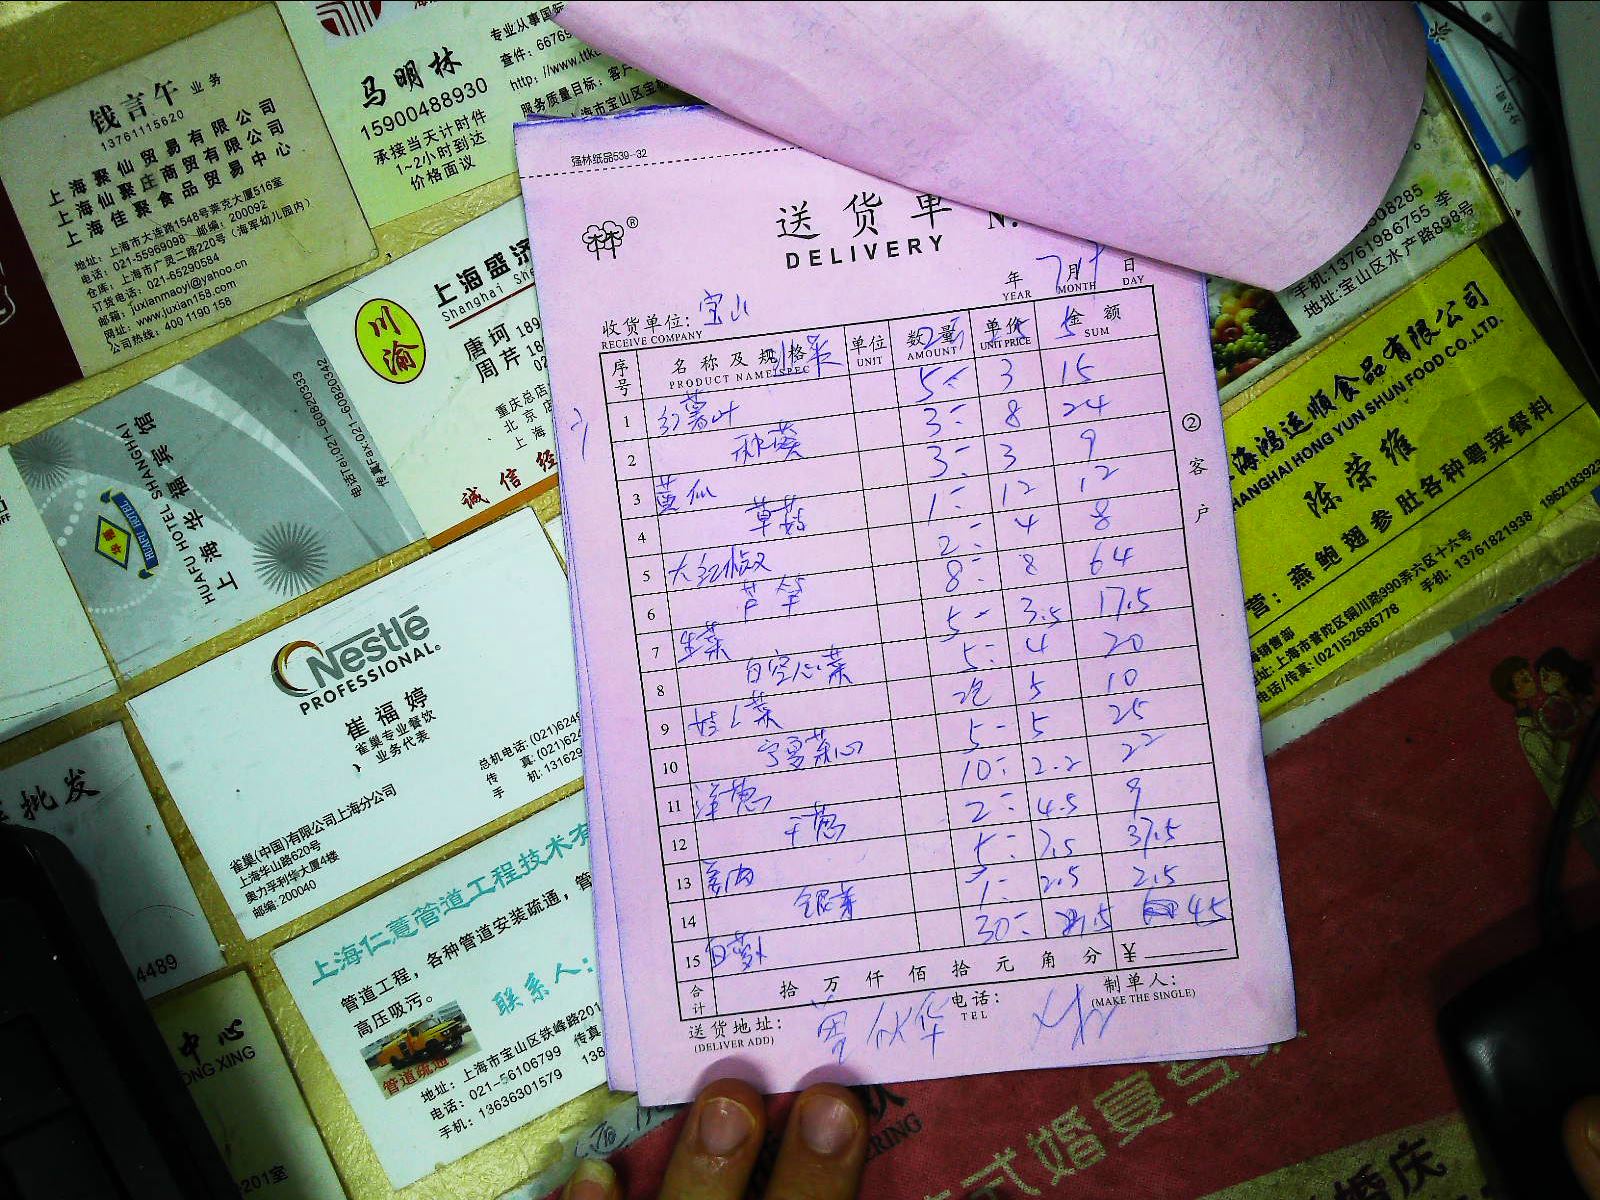 钱言午 业务
13761115620
上海聚仙贸易有限公司
上海仙聚庄商贸有限公司
上海佳聚食品贸易中心
地址：上海市大连路1548号莱克大厦516室
电话：021-55969098 邮编：200092
仓库：上海市广灵二路220号（海军幼儿园内）
订货电话：021-65290584
邮箱：juxianmaoyi@yahoo.cn
网址：www.juxian158.com
公司热线：400 1190 158
马明林
15900488930
承接当天计时件
1~2小时到达
价格面议
专业从事国际
查件：66769
服务质量目标：客户
川渝
上海盛济
Shanghai She
唐珂 189
周芹 18
重庆总店
北京店
上海
诚信经
HUAFU HOTEL SHANGHAI
上海华福宾馆
电话Tel:021-60820333
传真Fax:021-60820342
HUAFU HOTEL
Nestlé
PROFESSIONAL®
崔福婷
雀巢专业餐饮
业务代表
总机电话：(021)6249
传 真：(021)624
手 机：131629
雀巢(中国)有限公司上海分公司
上海华山路620号
奥力孚利华大厦4楼
邮编：200040
批发
4489
中心
ONG XING
201室
上海仁薏管道工程技术有
管道工程，各种管道安装疏通，管
高压吸污。
联系人：
管道疏通
地址：上海市宝山区铁峰路201
电话：021-56106799 传真
手机：13636301579 138
强林纸品539-32
送货单 N
DELIVERY
年 7月 日
YEAR MONTH DAY
收货单位：宝山
RECEIVE COMPANY
序号 名称及规格 单位 数量 单价 金额
PRODUCT NAME/SPEC UNIT AMOUNT UNIT PRICE SUM
5 3 15
1 红薯叶 3 8 24
2 秋葵 3 3 9
3 1 12 12
4 草菇 2 4 8
5 大红椒 8 8 64
6 芦笋 5 3.5 17.5
7 生菜 5 4 20
8 白空心菜 5 10
9 娃娃菜 5 5 25
10 宁夏菜心 10 2.2 22
11 洋葱 2 4.5 9
12 干葱 5 7.5 37.5
13 1 2.5 2.5
14 银芽 30 1.5 45
15 白萝卜
合计 拾万仟佰拾元角分 ¥
送货地址：
(DELIVER ADD)
电话：
TEL
制单人：
(MAKE THE SINGLE)
②客户
手机：13761986755 李
地址：宝山区水产路898号
海鸿运顺食品有限公司
HANGHAI HONG YUN SHUN FOOD CO.,LTD.
陈荣维
营：燕鲍翅参肚各种粤菜餐料
销售部
地址：上海市普陀区铜川路990弄六区十六号
电话/传真：(021)52686778 手机：13761821938 18621839
式婚宴
婚庆